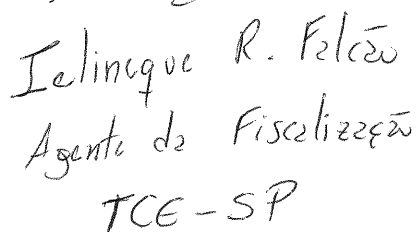 Ieline que R. Falcão
Agente da Fiscalização
TCE-SP